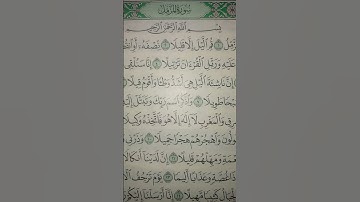 سُورَةُ المُزَّمِّلِ
بِسْمِ اللَّهِ الرَّحْمَٰنِ الرَّحِيمِ
زَّمِّلُ ١ قُمِ الَّيْلَ إِلَّا قَلِيلًا ٢ نِّصْفَهُ أَوِ
عَلَيْهِ وَرَتِّلِ الْقُرْءَانَ تَرْتِيلًا ٤ إِنَّا سَنُلْقِي
إِنَّ نَاشِئَةَ الَّيْلِ هِيَ أَشَدُّ وَطْـًٔا وَأَقْوَمُ قِيلًا
سَبْحًا طَوِيلًا ٧ وَاذْكُرِ اسْمَ رَبِّكَ وَتَبَتَّلْ إِلَيْ
رِقِ وَالْمَغْرِبِ لَا إِلَٰهَ إِلَّا هُوَ فَاتَّخِذْهُ وَكِيلًا
ولُونَ وَاهْجُرْهُمْ هَجْرًا جَمِيلًا ١٠ وَذَرْنِي
عْمَةِ وَمَهِّلْهُمْ قَلِيلًا ١١ إِنَّ لَدَيْنَا أَنكَالًا
ا غُصَّةٍ وَعَذَابًا أَلِيمًا ١٣ يَوْمَ تَرْجُفُ الْ
جِبَالُ كَثِيبًا مَّهِيلًا ١٤ إِنَّا أَرْسَلْنَا إِلَيْكُمْ